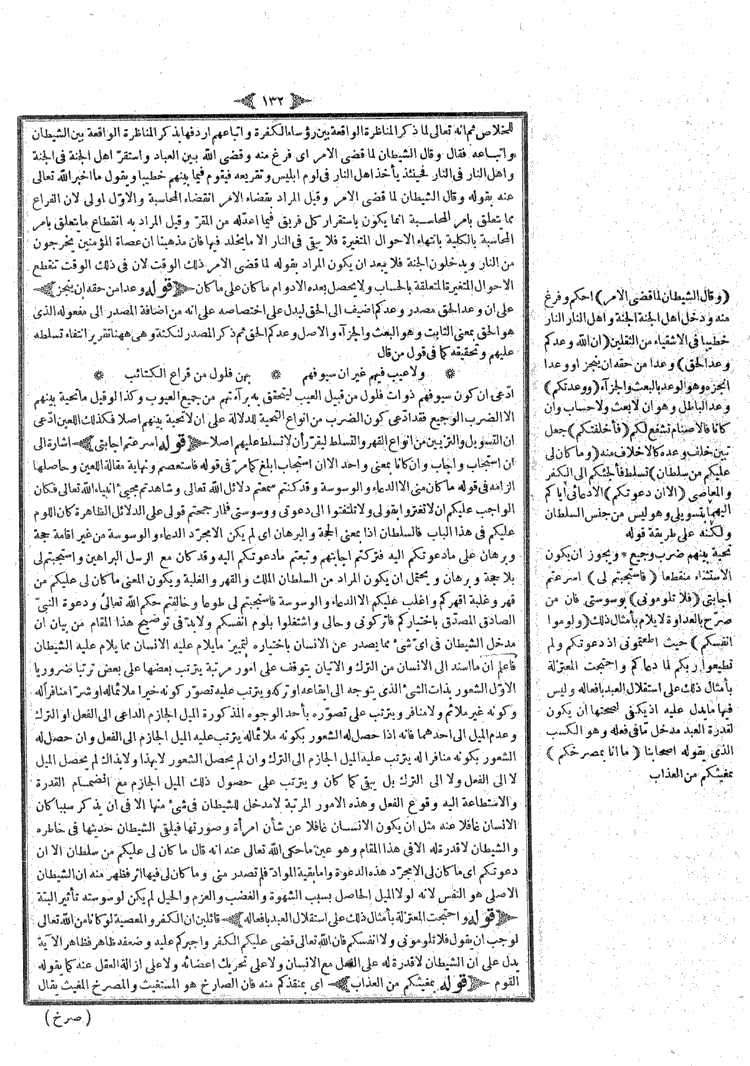 ١٣٢
للخلاص ثم انه تعالى لما ذكر المناظرة الواقعة بين رؤساء الكفرة واتباعهم اردفها بذكر المناظرة الواقعة بين الشيطان
واتباعه فقال وقال الشيطان لما قضى الامر اى فرغ منه وقضى الله بين العباد واستقرّ اهل الجنة فى الجنة
واهل النار فى النار فحينئذ يأخذ اهل النار فى لوم ابليس وتقريعه فيقوم فيما بينهم خطيبا ويقول ما اخبر الله تعالى
عنه بقوله وقال الشيطان لما قضى الامر وقيل المراد بقضاء الامر انقضاء المحاسبة والاوّل اولى لان الفراغ
مما يتعلق بامر المحاسبة انما يكون باستقرار كل فريق فيما اعدّله من المقرّ وقيل المراد به انقطاع ما يتعلق بامر
المحاسبة بالكلية بانتهاء الاحوال المتغيرة فلا يبقى فى النار الا ما يتخلد فيها فان مذهبنا ان عصاة المؤمنين يخرجون
من النار ويدخلون الجنة فلا يبعد ان يكون المراد بقوله لما قضى الامر ذلك الوقت لان فى ذلك الوقت تنقطع
الاحوال المتغيرة المتعلقة بالحساب ولا يحصل بعده الادوام ما كان على ما كان ﴿ قوله وعدا من حقه ان ينجز ﴾
على ان وعد الحق مصدر وعدكم اضيف الى الحق ليدل على اختصاصه على انه من اضافة المصدر الى مفعوله الذى
هو الحق بمعنى الثابت وهو البعث والجزآء والاصل وعدكم الحق ثم ذكر المصدر لنكتة وهى ههنا تقرير انتفاء تسلطه
عليهم وتحقيقه كما فى قول من قال
* ولا عيب فيهم غير ان سيوفهم * بهن فلول من قراع الكتائب *
ادّعى ان كون سيوفهم ذوات فلول من قبيل العيب ليتحقق به برآءتهم من جميع العيوب وكذا لوقيل ما تحية بينهم
الا الضرب الوجيع فقد ادّعى كون الضرب من انواع التحية للدلالة على ان لا تحية بينهم اصلا فكذلك اللعين ادّعى
ان التسويل والتزيين من انواع القهر والتسلط ليقرّر أن لا تسلط عليهم اصلا ﴿ قوله اسرعتم اجابتى ﴾ اشارة الى
ان استجاب واجاب وان كانا بمعنى واحد الا ان استجاب ابلغ كما مرّ فى قوله فاستعصم ونهاية مقالة اللعين وحاصلها
الزامه فى قوله ما كان منى الا الدعاء والوسوسة وقد كنتم سمعتم دلائل الله تعالى وشاهدتم مجيئ انبياء الله تعالى فكان
الواجب عليكم ان لا تغتروا بقولى ولا تلتفتوا الى دعوتى ووسوستى فلما رجحتم قولى على الدلائل الظاهرة كان اللوم
عليكم فى هذا الباب فالسلطان اذا بمعنى الحجة والبرهان اى لم يكن الامجرّد الدعاء والوسوسة من غير اقامة حجة
وبرهان على ما دعوتكم اليه فتركتم اجابتهم وتبعتم ما دعوتكم اليه وقد كان مع الرسل البراهين واستجبتم لى
بلا حجة وبرهان ويحتمل ان يكون المراد من السلطان الملك والقهر والغلبة ويكون المعنى ما كان لى عليكم من
قهر وغلبة اقهركم واغلب عليكم الا الدعاء والوسوسة فاستجبتم لى طوعا وخالفتم حكم الله تعالى ودعوة النبىّ
الصادق المصدّق باختياركم فاتركونى وحالى واشتغلوا بلوم انفسكم ولابد فى توضيح هذا المقام من بيان ان
مدخل الشيطان فى اى شئ مما يصدر عن الانسان باختياره ليتميز ما يلام عليه الانسان مما يلام عليه الشيطان
فاعلم ان ما اسند الى الانسان من الترك والاتيان يتوقف على امور مرتبة يترتب بعضها على بعض ترتبا ضروريا
الاوّل الشعور بذات الشئ الذى يتوجه الى ايقاعه او تركه ويترتب عليه تصور كونه خيرا ملائما له او شرّا منافرا له
وكونه غير ملائم ولا منافر ويترتب على تصوّره بأحد الوجوه المذكورة الميل الجازم الداعى الى الفعل او الترك
وعدم الميل الى احدهما فانه اذا حصل له الشعور بكونه ملائما له يترتب عليه الميل الجازم الى الفعل وان حصل له
الشعور بكونه منافرا له يترتب عليه الميل الجازم الى الترك وان لم يحصل الشعور لا بهذا ولا بذاك لم يحصل الميل
لا الى الفعل ولا الى الترك بل يبقى كما كان ويترتب على حصول ذلك الميل الجازم مع انضمام القدرة
والاستطاعة اليه وقوع الفعل وهذه الامور المرتبة لا مدخل للشيطان فى شئ منها الا فى ان يذكر سببا كان
الانسان غافلا عنه مثل ان يكون الانسان غافلا عن شأن امرأة وصورتها فيلقى الشيطان حديثها فى خاطره
والشيطان لا قدرة له الا فى هذا المقام وهو عين ما حكى الله تعالى عنه انه قال ما كان لى عليكم من سلطان الا ان
دعوتكم اى ما كان لى الامجرّد هذه الدعوة واما بقية المواد فلم تصدر منى وما كان لى فيها اثر فظهر منه ان الشيطان
الاصلى هو النفس لانه لولا الميل الحاصل بسبب الشهوة والغضب والعزم والحيل لم يكن لوسوسته تأثير البتة
﴿ قوله واحتجت المعتزلة بأمثال ذلك على استقلال العبد بافعاله ﴾ قائلين ان الكفر والمعصية لو كانا من الله تعالى
لوجب ان يقول فلا تلومونى ولا انفسكم فان الله تعالى قضى عليكم الكفر واجبركم عليه وضعفه ظاهر فظاهر الآية
يدل على ان الشيطان لا قدرة له على الفعل مع الانسان ولا على تحريك اعضائه ولا على ازالة العقل عنه كما يقوله
القوم ﴿ قوله بمغيثكم من العذاب ﴾ اى بمنقذكم منه فان الصارخ هو المستغيث والمصرخ المغيث يقال
( صرخ )
(وقال الشيطان لما قضى الامر) احكم وفرغ
منه ودخل اهل الجنة الجنة واهل النار النار
خطيبا فى الاشقياء من الثقلين (ان الله وعدكم
وعد الحق) وعدا من حقه ان ينجز او وعدا
انجزه وهو الوعد بالبعث والجزآء (ووعدتكم)
وعد الباطل وهو ان لا بعث ولا حساب وان
كانا فالاصنام تشفع لكم (فأخلفتكم) جعل
تبين خلف وعده كالاخلاف منه (وما كان لى
عليكم من سلطان) تسلط فألجئكم الى الكفر
والمعاصى (الا ان دعوتكم) الا دعائى اياكم
اليهما بتسويلى وهو ليس من جنس السلطان
ولكنه على طريقة قوله
تحية بينهم ضرب وجيع * ويجوز ان يكون
الاستثناء منقطعا (فاستجبتم لى) اسرعتم
اجابتى (فلا تلومونى) بوسوستى فان من
صرّح بالعداوة لا يلام بأمثال ذلك (ولوموا
انفسكم) حيث اطعتمونى اذ دعوتكم ولم
تطيعوا ربكم لما دعاكم واحتجت المعتزلة
بأمثال ذلك على استقلال العبد بافعاله وليس
فيها ما يدل عليه اذ يكفى لصحتها ان يكون
لقدرة العبد مدخل مّا فى فعله وهو الكسب
الذى يقوله اصحابنا (ما انا بمصرخكم)
بمغيثكم من العذاب